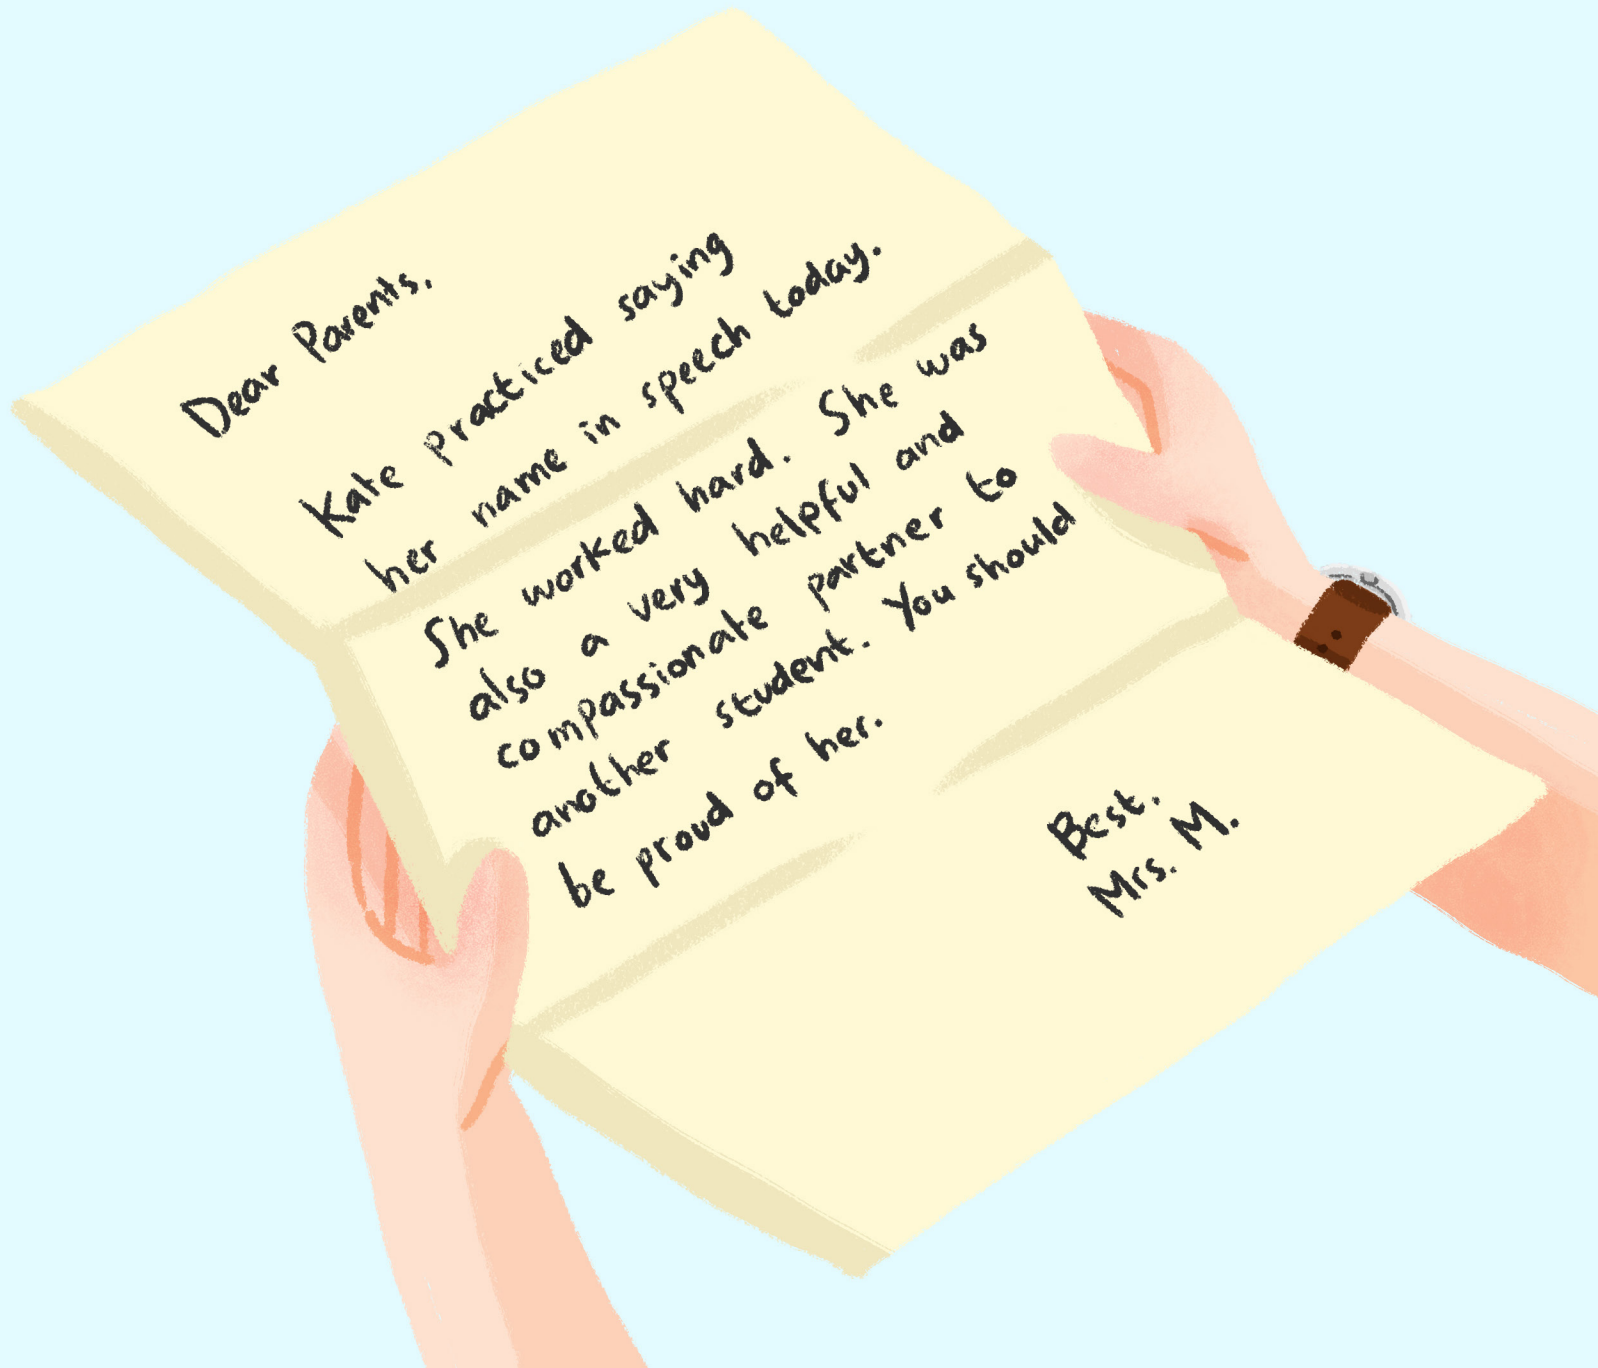 Dear Parents,
Kate practiced saying
her name in speech today.
She worked hard. She was
also a very helpful and
compassionate partner to
another student. You should
be proud of her.
Best,
Mrs. M.